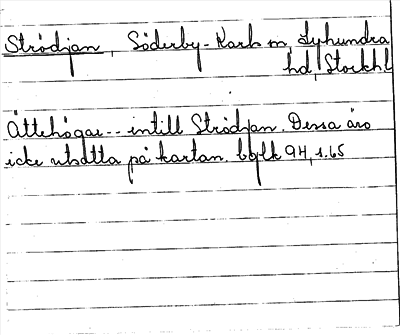 Strödjan, Söderby-Karls sn, Lyhundra
hd, Stockhl
Ättehögar -- intill Strödjan. Dessa äro
icke utsatta på kartan. bglk 94, s. 65